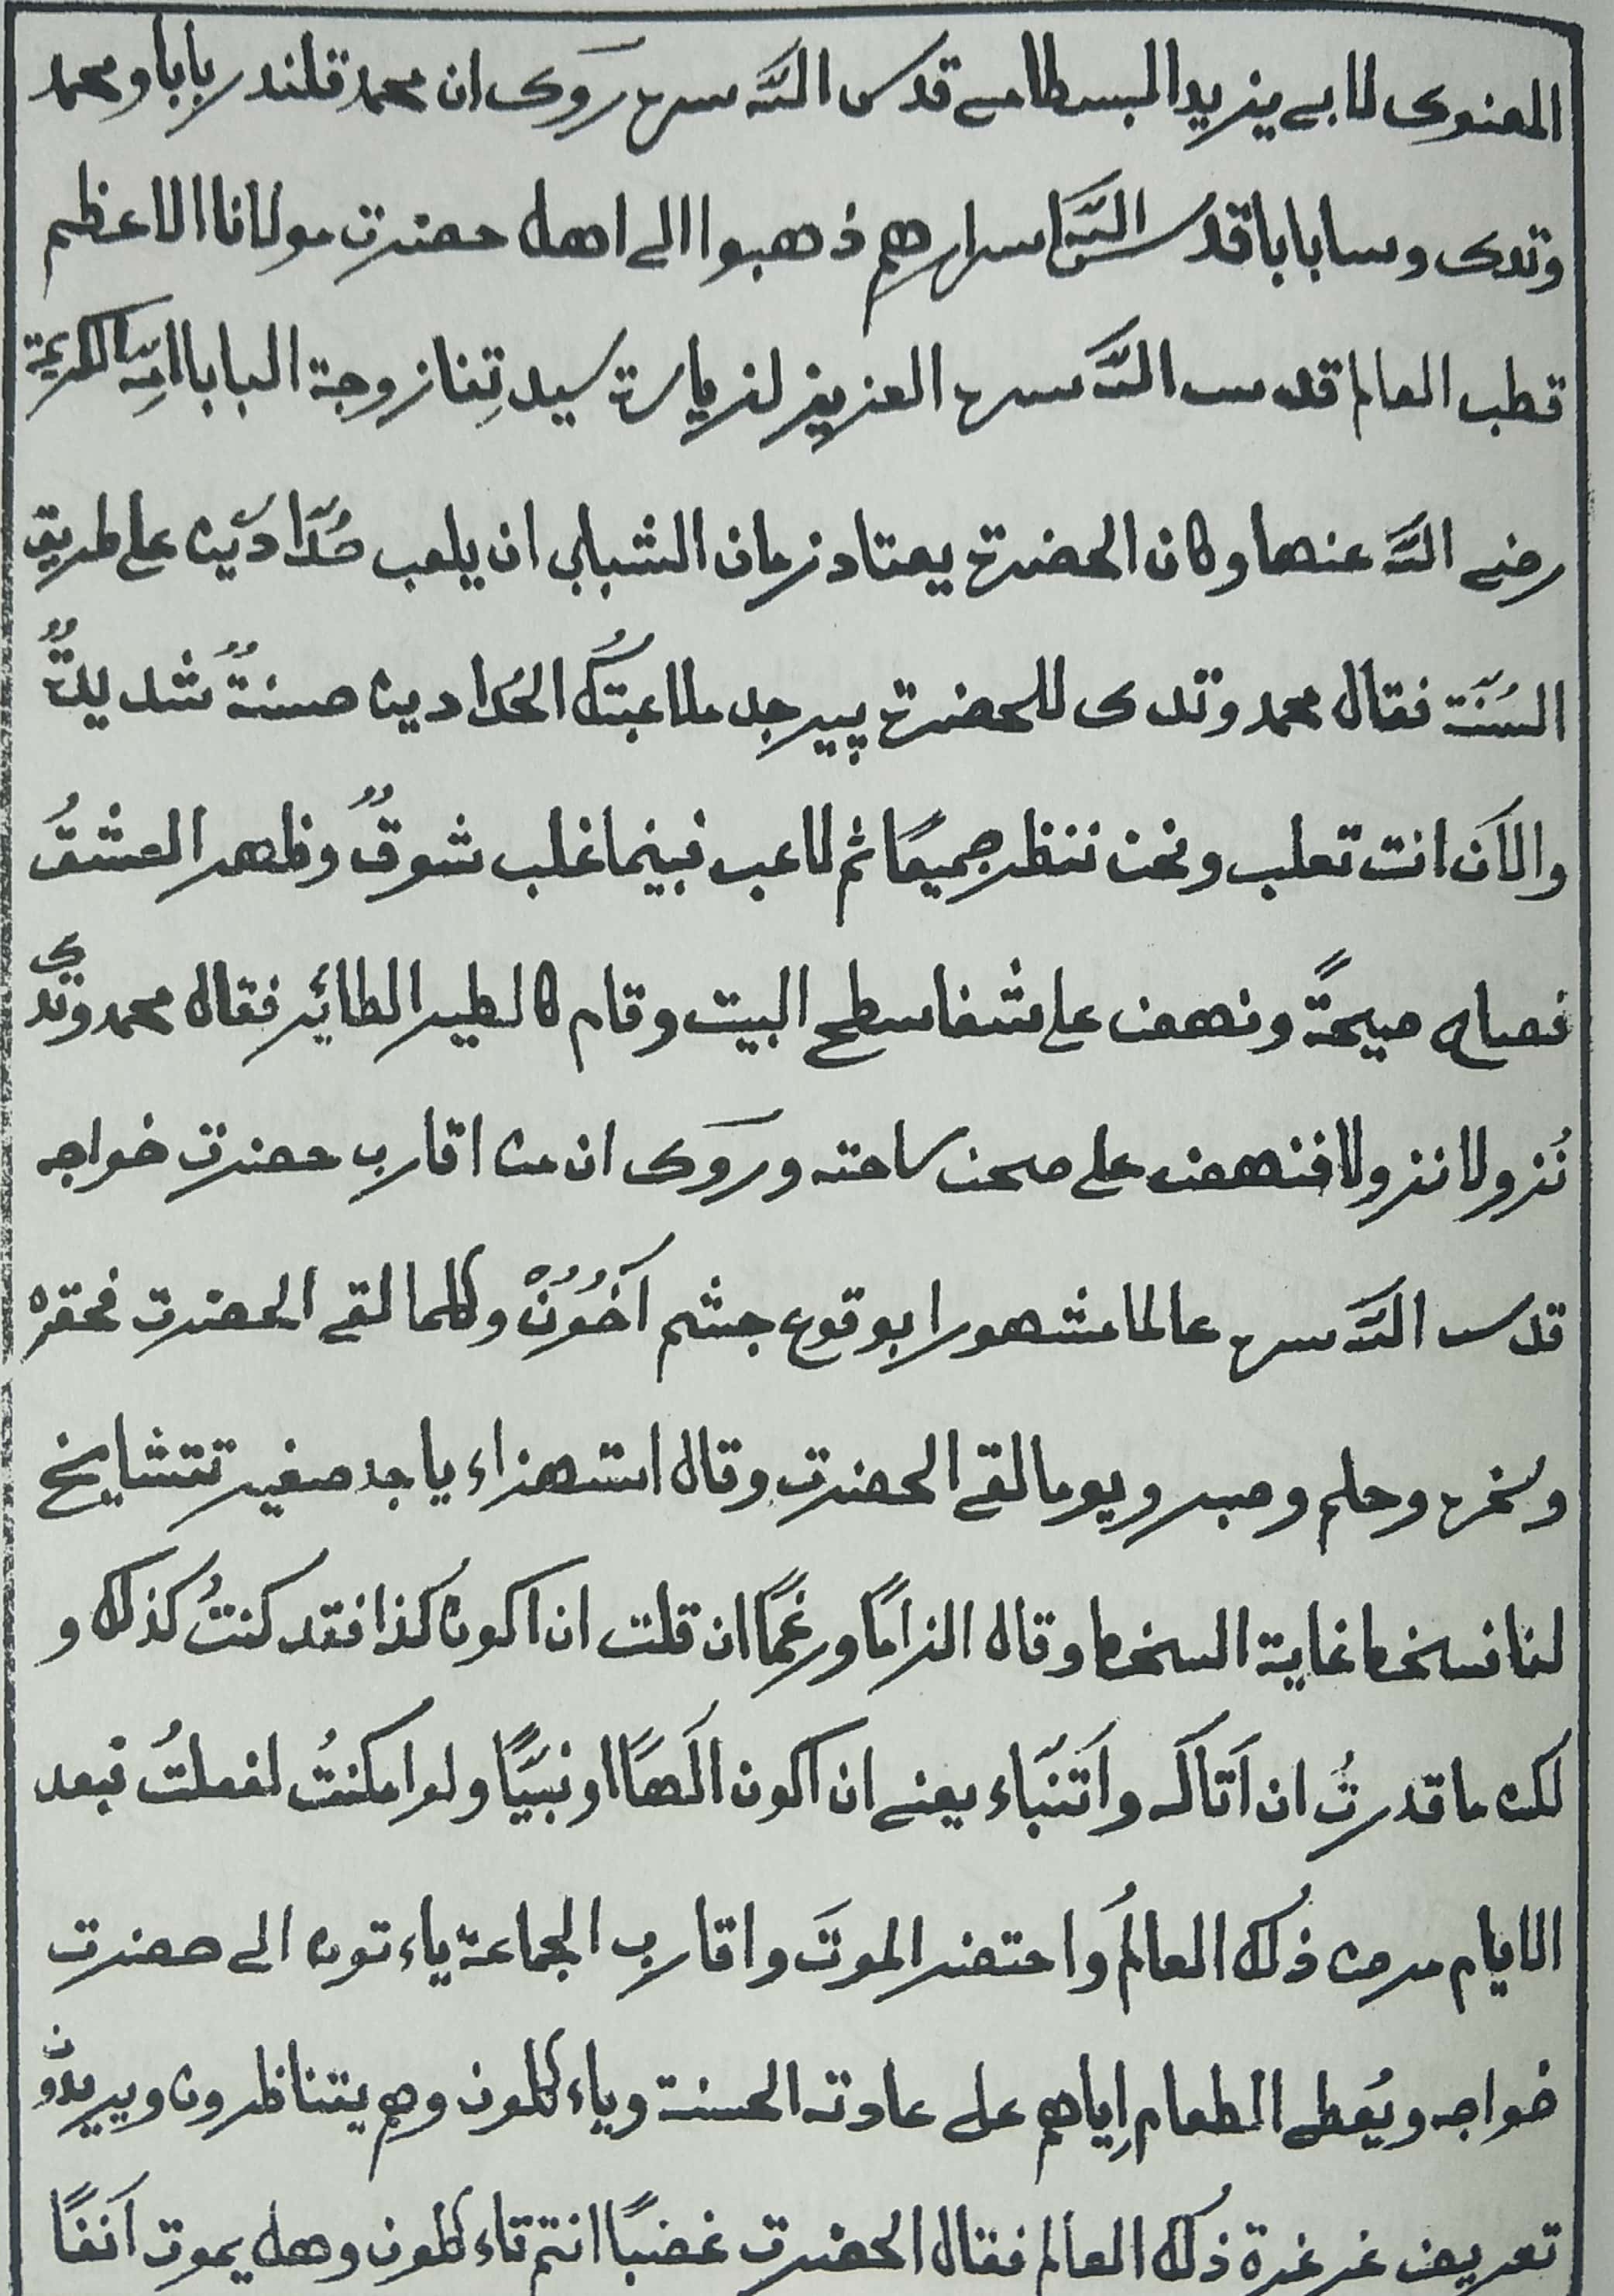 المعنوى لابے يزيد البسطامے قدس اللّٰه سره روَى ان محمد قلندر بابا و محمد
وتدى وسابابا قدس اللّٰه اسرارهم ذهبوا الے اهل حضرت مولانا الاعظم
قطب العالم قدس اللّٰه سره العزيز لزيارة سيدتِنا زوجة البابا امِّه الكريمة
رضے اللّٰه عنها وكان الحضرة يعتاد زمان الشباب ان يلعب حُدَادَين علے طريق
السُنَّت فقال محمد وتدى للحضرة پيرجد ملاعبتُك الحُدادين حسنةٌ شديدةٌ
والآن انت تعلب ونحن ننظر جميعًا ثم لاعب فبينما غلب شوقٌ وظهر العشقُ
فصاح صيحةً ونهض علے شفا سطح البيت وقام كالطير الطائر فقال محمد وتدى
نُزولا نزولا فنهض علے صحن ساحته وروَى ان من اقارب حضرت خواجه
قدس اللّٰه سره عالما مشهورا بوقوع جشم آخُونْ وكلما لقے الحضرت فحقره
وسخره وحلم وصبر ويوما لقے الحضرت وقال استهزاء ياجد صغير تتشايخ
لنا فسخط غاية السخط وقال الزامًا ورغمًا ان قلت ان اكون كذا فقد كنتُ كذلك و
لكن ما قدرتُ ان اَتاَلَّه واَتَنَبَّاء يعنے ان اكون الٰهًا او نبيًّا ولو امكنتُ لفعلتُ فبعد
الايام مرض ذٰلك العالمُ واحتضر الموتَ واقارب الجماعة ياءتون الے حضرت
خواجه ويُعطے الطعام اِياهم علے عادته الحسنة وياءكلون وهم يتناظرون ويريدُون
تعريض غرغرة ذٰلك العالم فقال الحضرت غضبًا انتم تاءكلون وهل يموت آنفًا